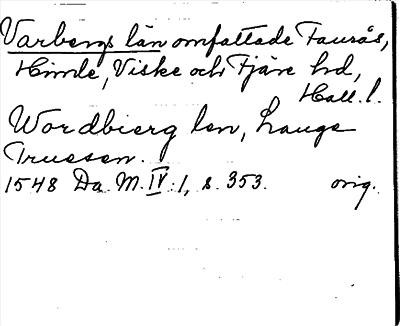 Varbergs län omfattade Faurås,
Himle, Viske och Fjäre hd,
Hall. l.
Wordbierg len, Lauge
Trussen.
1548 Da. M. IV:1, s. 353. orig.